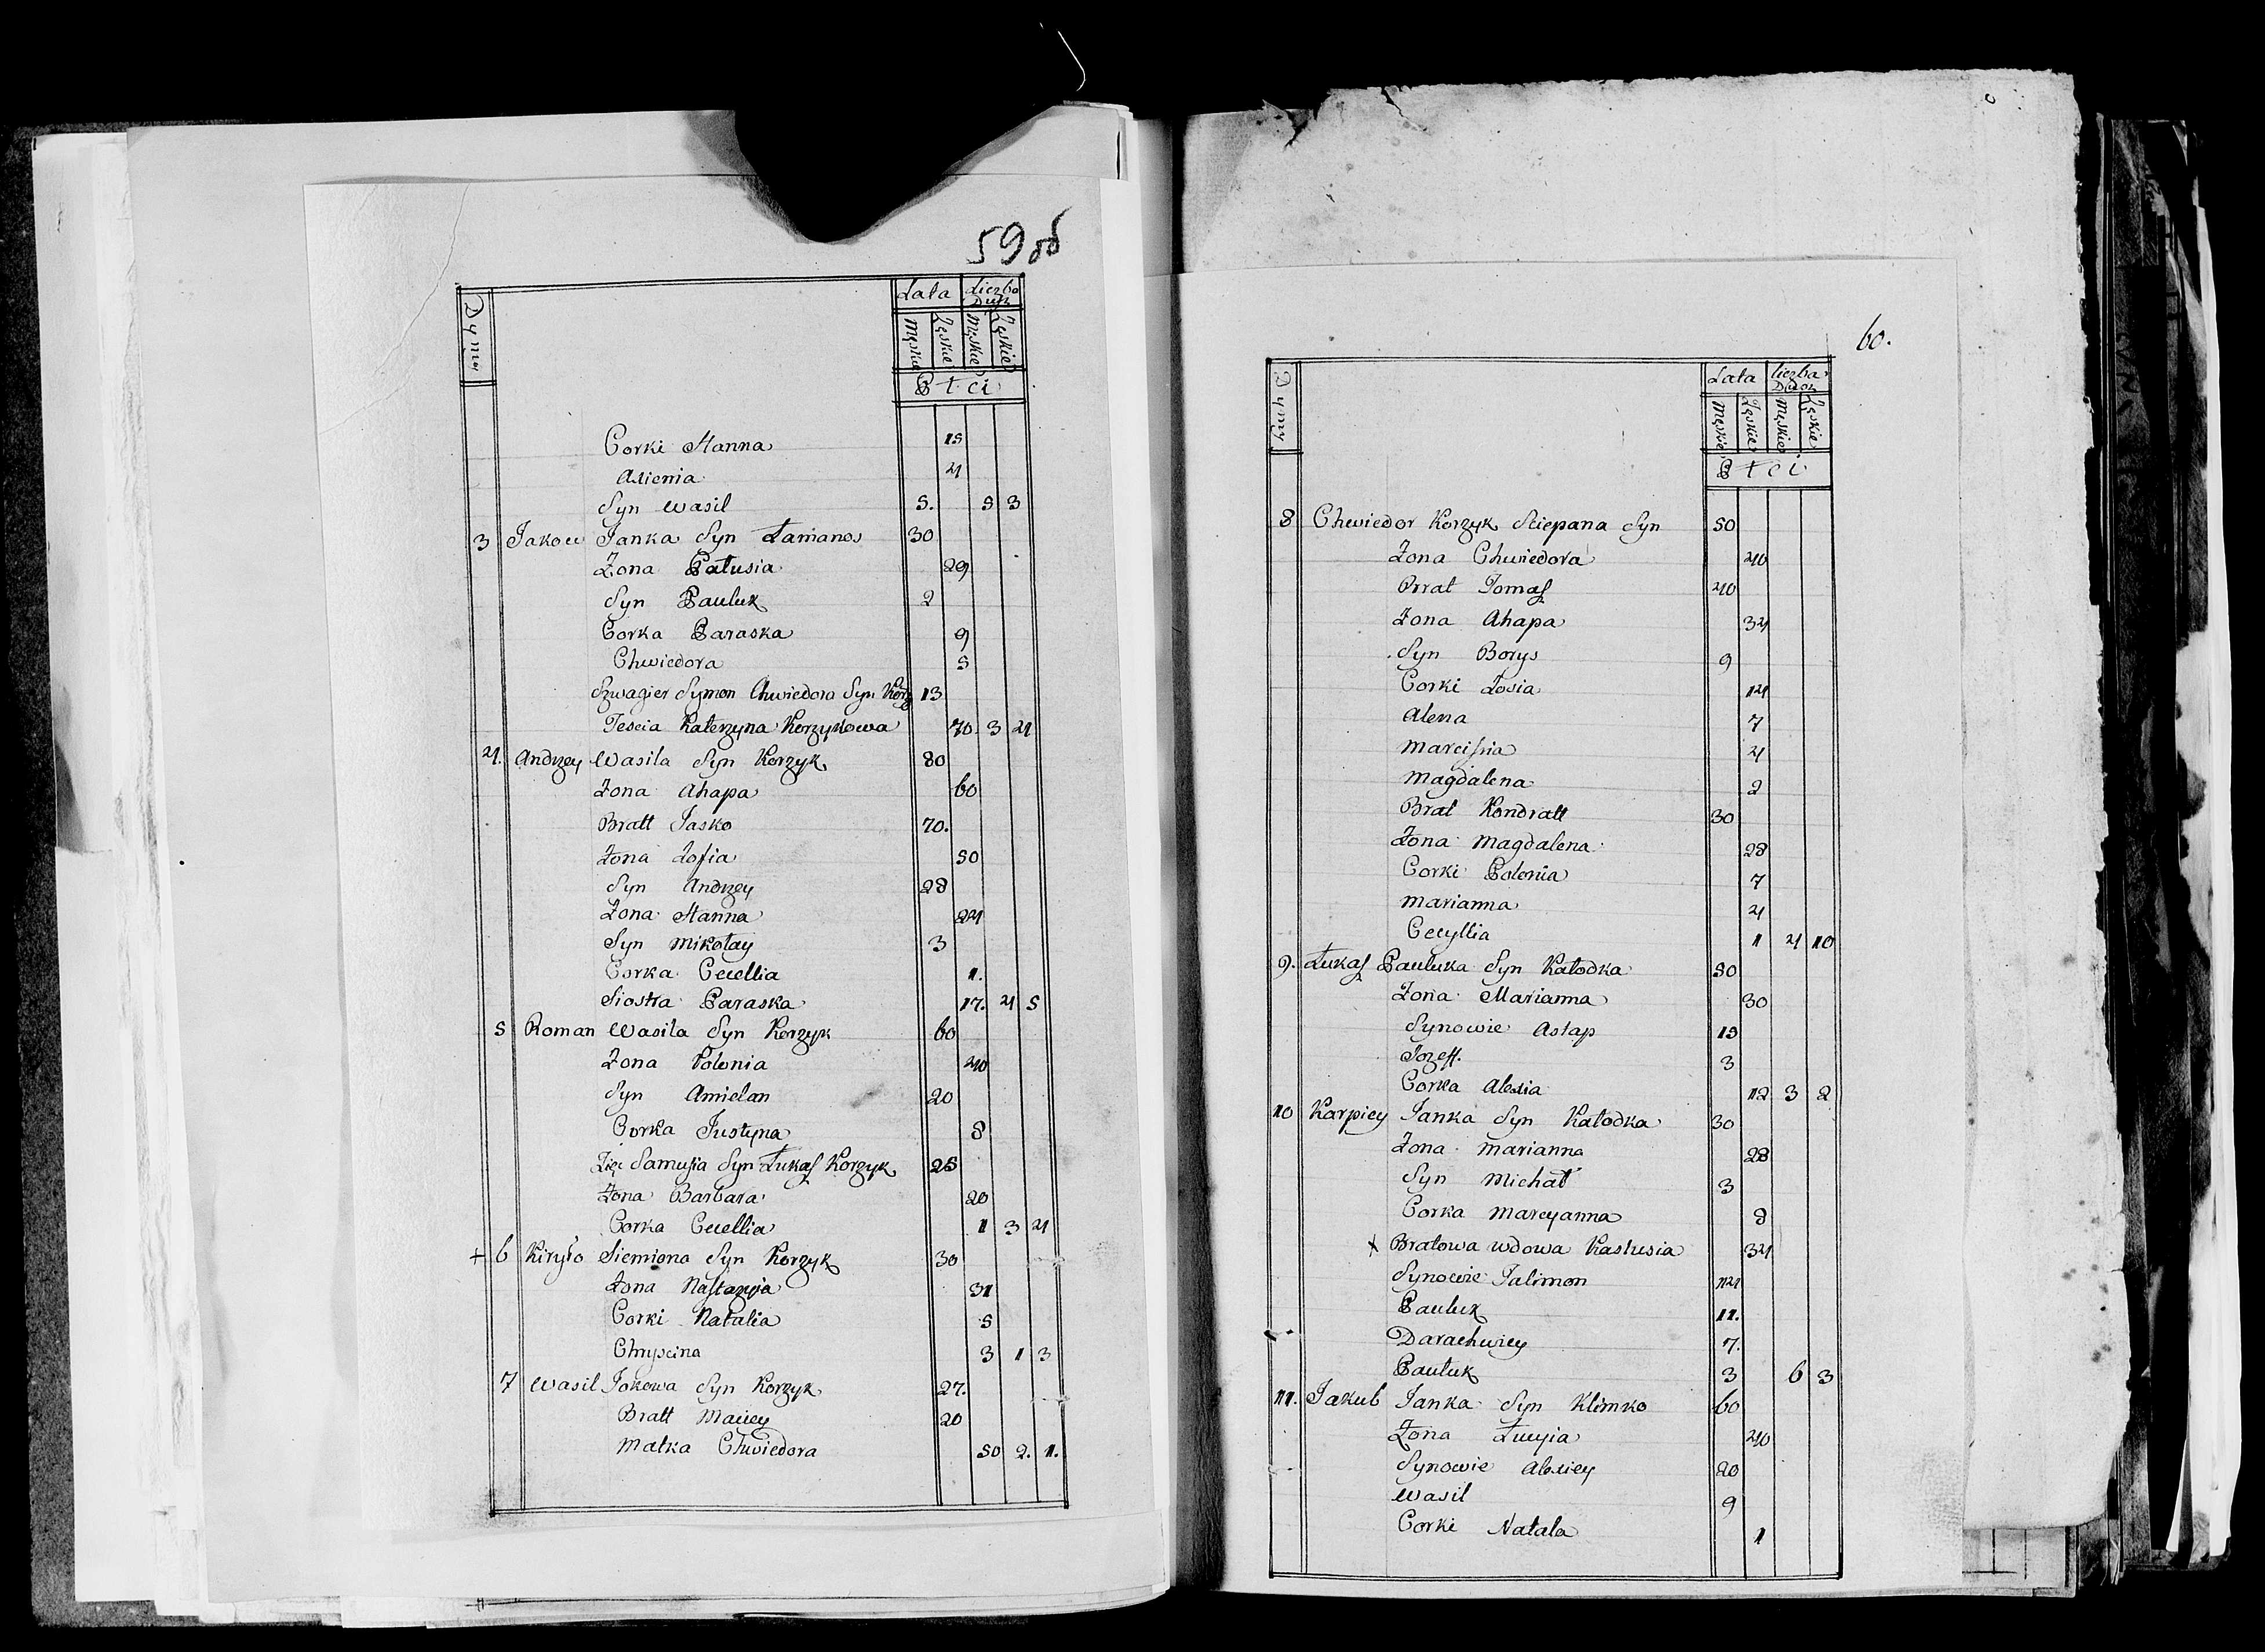 59 об
Dymy Lata Liczba Dusz
Męskie Żęskie Męskie Żęskie
Płci
Corki Hanna 15
Axienia 4
Syn Wasil 5. 5 3
3 Jakow Janka Syn Łamanos 30
Żona Patusia 29
Syn Pauluk 2
Corka Paraska 9
Chwiedora 5
Szwagier Symon Chwiedora Syn Korz 13
Tescia Katerzyna Korzykowa 70. 3 4
4. Andrzey Wasila Syn Korzyk 80
Żona Ahapa 60
Bratt Jasko 70.
Żona Zofia 50
Syn Andrzey 28
Żona Hanna 24
Syn Mikołay 3
Corka Cecellia 1.
Siostra Paraska 17. 4 5
5 Roman Wasila Syn Korzyk 60
Żona Polonia 40
Syn Amielan 20
Corka Justyna 8
Zięć Samusia Syn Łukasz Korzyk 25
Żona Barbara 20
Corka Cecellia 1 3 4
+ 6 Kiryło Siemiona Syn Korzyk 30
Żona Nastazyia 31
Corki Natalia 5
Chryscina 3 1 3
7 Wasil Jokowa Syn Korzyk 27.
Bratt Maciey 20
Matka Chwiedora 50 2. 1.
60.
Dymy Lata Liczba Dusz
Męskie Żęskie Męskie Żęskie
Płci
8 Chwiedor Korzyk Sciepana Syn 50
Żona Chwiedora 40
Brat Tomasz 40
Żona Ahapa 34
Syn Borys 9
Corki Zosia 14
Alena 7
Marcissia 4
Magdalena 2
Brat Kondratt 30
Żona Magdalena 28
Corki Polonia 7
Marianna 4
Cecyllia 1 4 10
9. Łukasz Pauluka Syn Kałodka 50
Żona Marianna 30
Synowie Astap 15
Jozeff. 3
Corka Alexia 12 3 2
10 Karpiey Janka Syn Kałodka 30
Żona Marianna 28
Syn Michał 3
Corka Marcyanna 8
x Bratowa wdowa Kastusia 34
Synowie Jalimon 14
Pauluk 11.
Darachwiey 7.
Pauluk 3 6 3
11. Jakub Janka Syn Klimko 60
Żona Łucyia 40
Synowie Alexiey 20
Wasil 9
Corki Natala 1